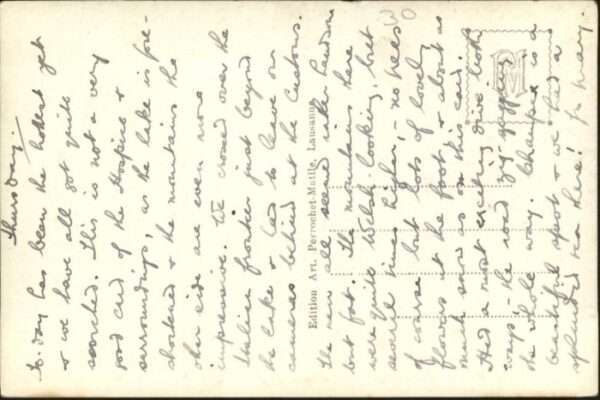 Thursday.
To-day has been the hottest yet
& we have all got quite
scorched. This is not a very
good card of the Hospice &
surroundings, as the lake is fore-
shortened & the mountains the
other side are even more
impressive. We crossed over the
Italian frontier just beyond
the lake & had to leave our
cameras behind at the Customs.
Edition Art. Perrochet-Matile, Lausanne
The men all seemed rather
but fat. The mountains here
were quite Welsh-looking, but
several times higher, - no trees
of course but lots of lovely
flowers at the foot & about as
much snow as on this card.
Had a most exciting drive both
ways - the road zig-zagging
the whole way. Champex is a
beautiful spot & we had a
splendid tea there! Mary.